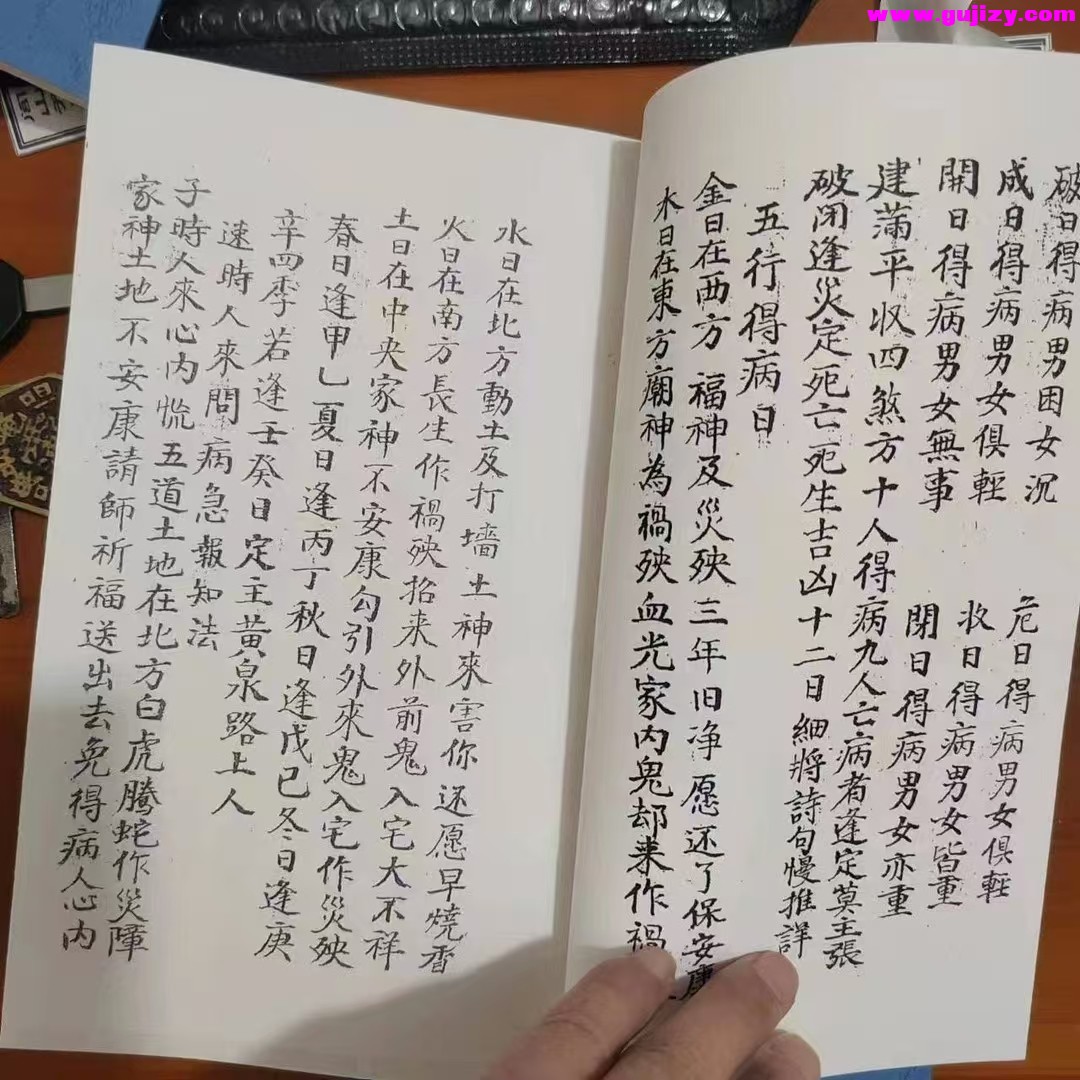 www.gujizy.com
破日得病男困女沉
危日得病男女俱輕
成日得病男女俱輕
收日得病男女皆重
開日得病男女無事
閉日得病男女亦重
建滿平收四煞方十人得病九人亡病者逢定莫主張
破闭逢災定死亡死生吉凶十二日細將詩句慢推詳
五行得病日
金日在西方福神及災殃三年旧净愿还了保安康
木日在東方廟神為禍殃血光家内鬼却来作禍
水日在北方動土及打墻土神來害你还愿早燒香
火日在南方長生作禍殃招来外前鬼入宅大不祥
土日在中央家神不安康勾引外來鬼入宅作災殃
春日逢甲乚夏日逢丙丁秋日逢戊己冬日逢庚
辛四季若逢壬癸日定主黄泉路上人
速時人來問病急報知法
子時人來心内慌五道土地在北方白虎騰蛇作災障
家神土地不安康請師祈福送出去免得病人心内